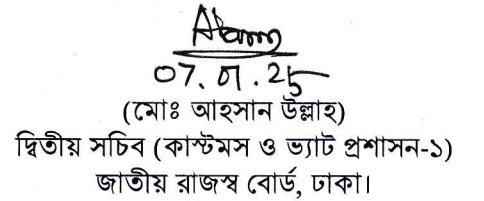 07.01.25
(মোঃ আহসান উল্লাহ)
দ্বিতীয় সচিব (কাস্টমস ও ভ্যাট প্রশাসন-১)
জাতীয় রাজস্ব বোর্ড, ঢাকা।